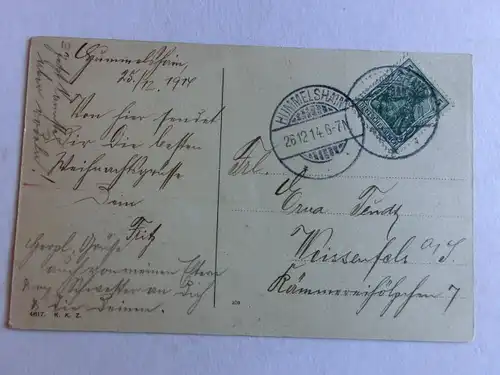 Hummelshain,
25./12. 1914
Von hier sendet
Dir die besten
Weihnachtsgrüsse
Dein
Fritz
Herzl. Grüße
auch von meinen Eltern
an Dich
die Deinen.
4817. R. K. Z.
HUMMELSHAIN
26.12.14.6-7N
Frl.
Erna
Weissenfels a/S.
7